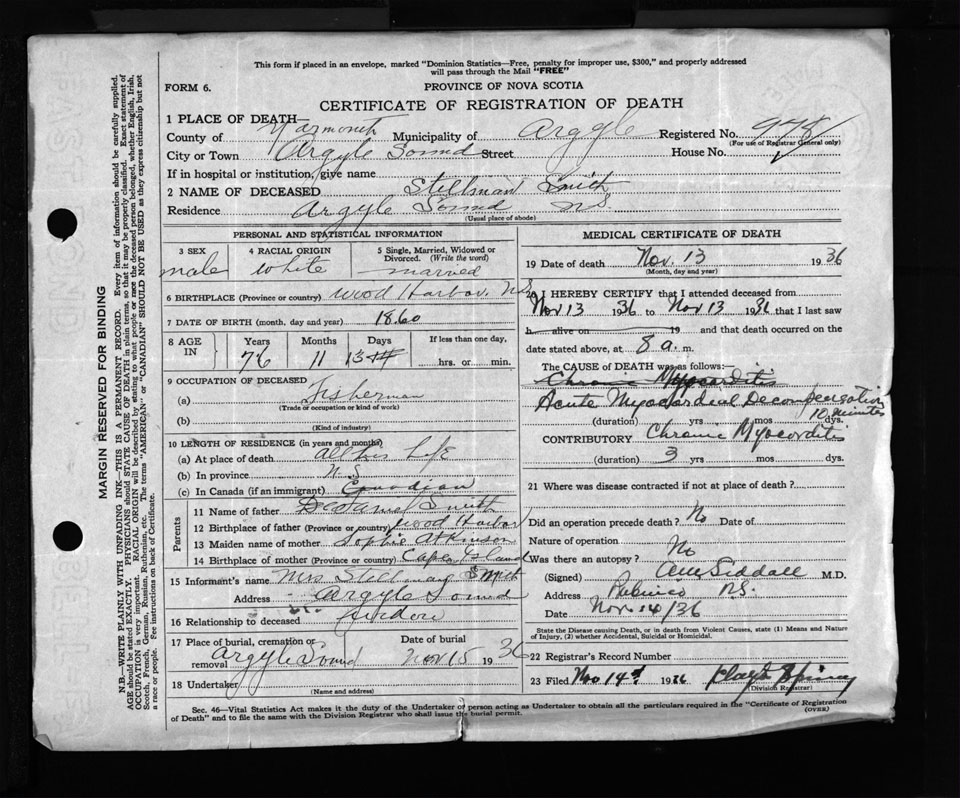 This form if placed in an envelope, marked "Dominion Statistics—Free, penalty for improper use, $300," and properly addressed
will pass through the Mail "FREE"
FORM 6.
PROVINCE OF NOVA SCOTIA
CERTIFICATE OF REGISTRATION OF DEATH
1 PLACE OF DEATH—
County of Yarmouth Municipality of Argyle Registered No. 978
(For use of Registrar General only)
City or Town Argyle Sound Street House No.
If in hospital or institution, give name
2 NAME OF DECEASED Stellman Smith
Residence Argyle Sound NS
(Usual place of abode)
PERSONAL AND STATISTICAL INFORMATION
3 SEX 4 RACIAL ORIGIN 5 Single, Married, Widowed or Divorced. (Write the word)
male white married
6 BIRTHPLACE (Province or country) Wood Harbor, N.S.
7 DATE OF BIRTH (month, day and year) 1860
8 AGE IN Years Months Days If less than one day,
76 11 13 hrs. or min.
9 OCCUPATION OF DECEASED
(a) Fisherman
(Trade or occupation or kind of work)
(b)
(Kind of industry)
10 LENGTH OF RESIDENCE (in years and months)
(a) At place of death all his Life
(b) In province N.S
(c) In Canada (if an immigrant) Canadian
Parents
11 Name of father Smith
12 Birthplace of father (Province or country) Wood Harbor
13 Maiden name of mother Sophie Atkinson
14 Birthplace of mother (Province or country) Cape Island
15 Informant's name Mrs Stellman Smith
Address Argyle Sound
16 Relationship to deceased
17 Place of burial, cremation or removal Argyle Sound Date of burial Nov 15 1936
18 Undertaker
(Name and address)
MEDICAL CERTIFICATE OF DEATH
19 Date of death Nov. 13 1936
(Month, day and year)
20 I HEREBY CERTIFY that I attended deceased from
Nov 13 1936 to Nov 13 1936 that I last saw
h alive on 19 and that death occurred on
date stated above, at 8 a. m.
The CAUSE OF DEATH was as follows:—
Chronic Myocarditis
Acute Myocardial Decompensation
10 minutes
(duration) yrs mos dys.
CONTRIBUTORY Chronic Myocarditis
(duration) 3 yrs mos dys.
21 Where was disease contracted if not at place of death?
Did an operation precede death? No Date of
Nature of operation
Was there an autopsy? No
(Signed) Siddall M.D.
Address Pubnico N.S.
Date Nov. 14/36
State the Disease causing Death, or in death from Violent Causes, state (1) Means and
Nature of Injury, (2) whether Accidental, Suicidal or Homicidal.
22 Registrar's Record Number
23 Filed Nov 14th 1936
(Division Registrar)
Sec. 46—Vital Statistics Act makes it the duty of the Undertaker or person acting as Undertaker to obtain all the particulars required in the "Certificate of Registration
of Death" and to file the same with the Division Registrar who shall issue the burial permit.
(OVER)
MARGIN RESERVED FOR BINDING
N.B.—WRITE PLAINLY WITH UNFADING INK—THIS IS A PERMANENT RECORD. Every item of information should be carefully supplied.
AGE should be stated EXACTLY. PHYSICIANS should STATE CAUSE OF DEATH in plain terms, so that it may be properly classified. Exact statement of
OCCUPATION is very important. RACIAL ORIGIN will be described by stating to what people or race the deceased person belonged, whether English, Irish,
Scotch, French, German, Russian, Ruthenian, etc. The terms "AMERICAN" or "CANADIAN" SHOULD NOT BE USED as they express citizenship but not
a race or people. Fee instructions on back of Certificate.